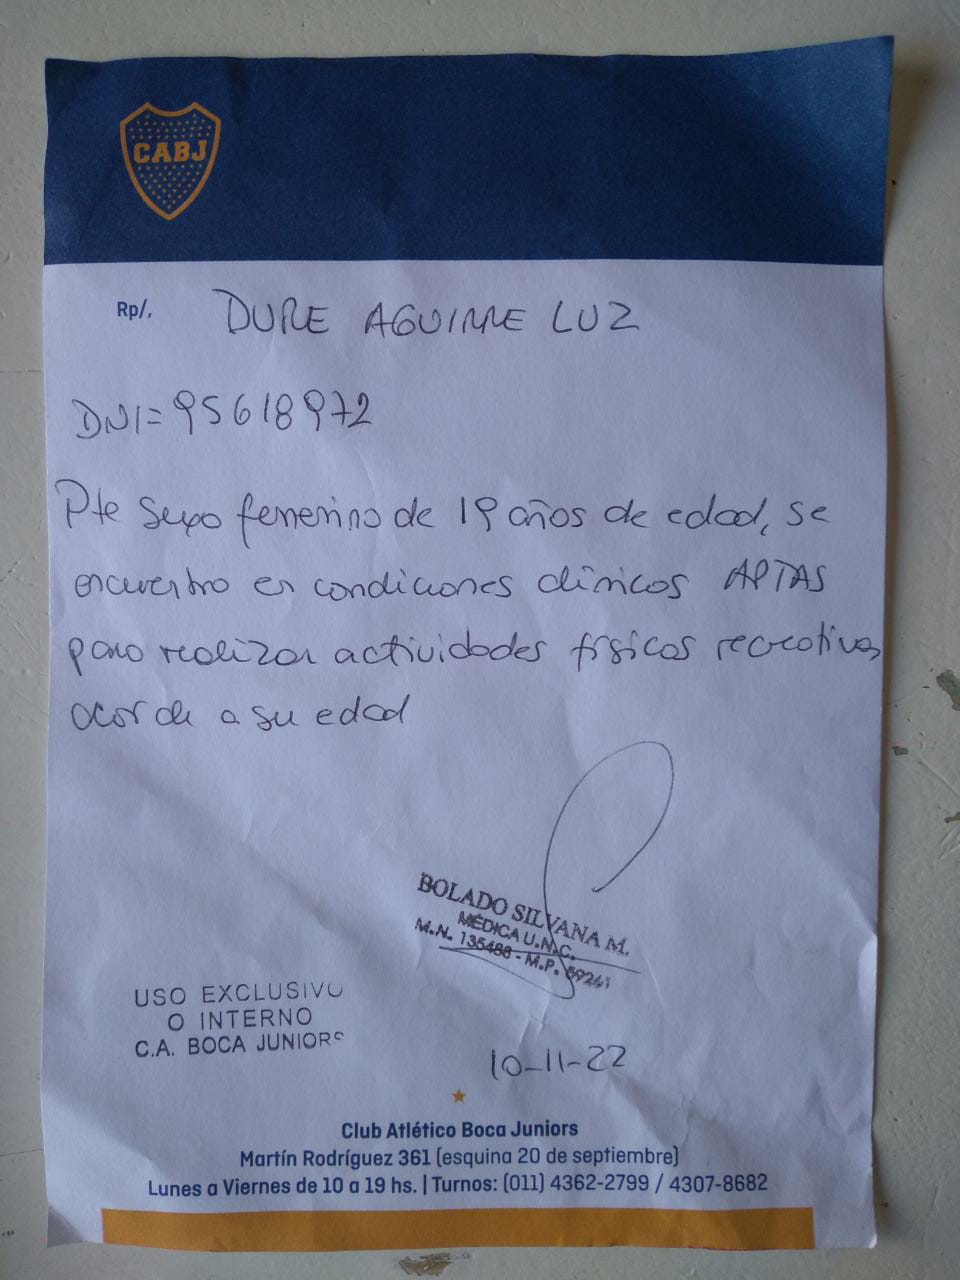 CABJ
Rp/. DURE AGUIRRE LUZ
DNI=95618972
Pte sexo femenino de 19 años de edad, se
encuentra en condiciones clínicas APTAS
para realizar actividades físicas recreativas
acorde a su edad
BOLADO SILVANA M.
MÉDICA U.N.C.
M.N. 135488 - M.P. 59261
USO EXCLUSIVO
O INTERNO
C.A. BOCA JUNIORS
10-11-22
Club Atlético Boca Juniors
Martín Rodríguez 361 (esquina 20 de septiembre)
Lunes a Viernes de 10 a 19 hs. | Turnos: (011) 4362-2799 / 4307-8682